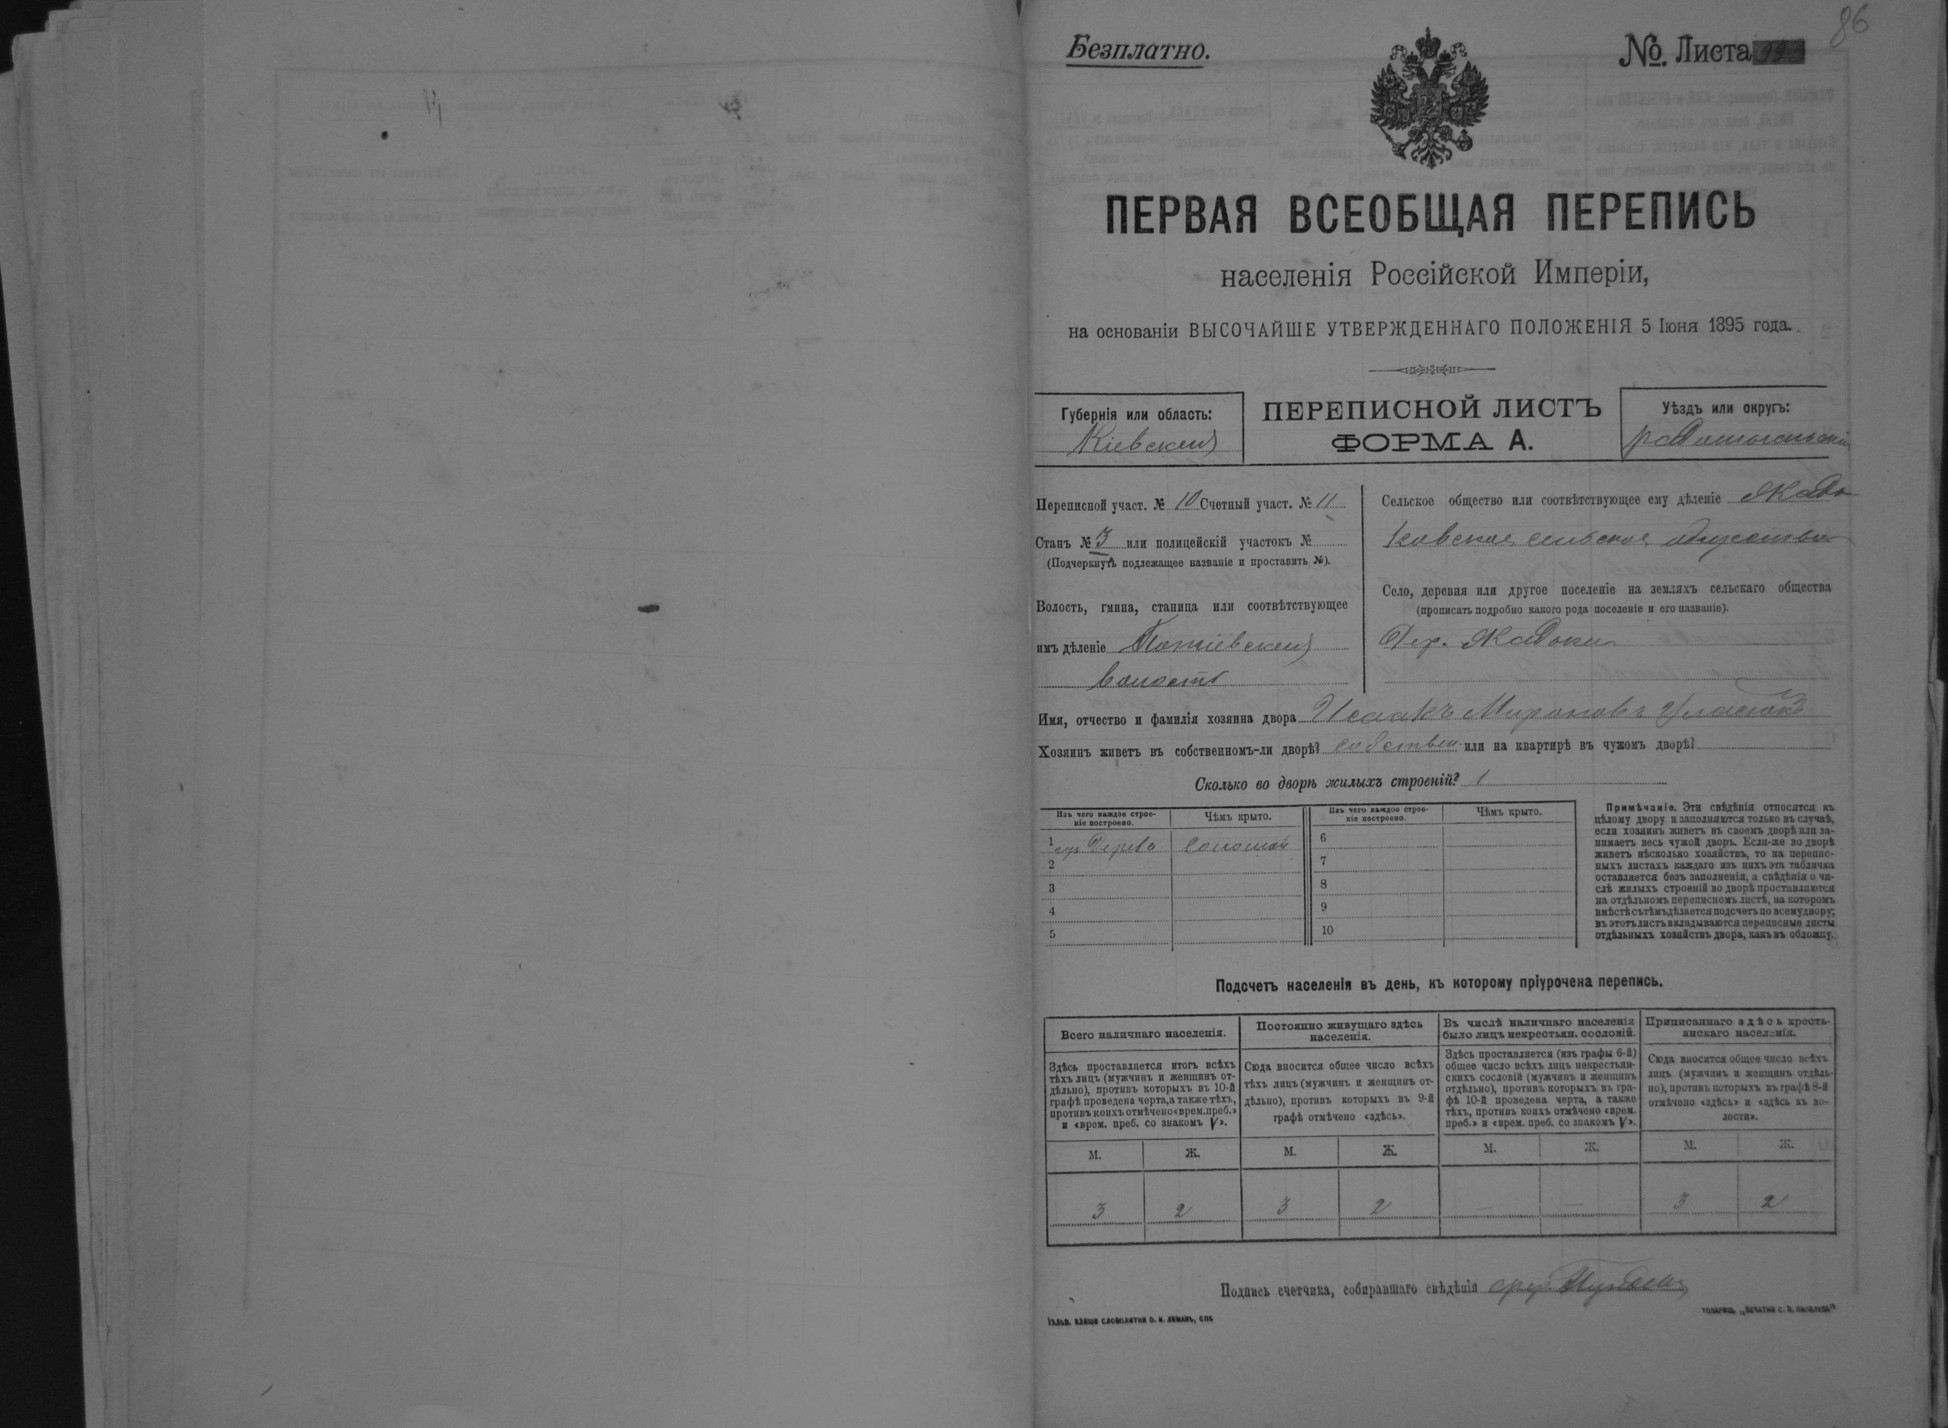 86
Безплатно.
№. Листа
ПЕРВАЯ ВСЕОБЩАЯ ПЕРЕПИСЬ
населенія Россійской Имперіи,
на основаніи ВЫСОЧАЙШЕ УТВЕРЖДЕННАГО ПОЛОЖЕНІЯ 5 Іюня 1895 года.
Губернія или область:
Кіевская
ПЕРЕПИСНОЙ ЛИСТЪ
ФОРМА А.
Уѣздъ или округъ:
Радомысльскій
Переписной участ. № 10 Счетный участ. № 11
Станъ № 3 или полицейскій участокъ №
(Подчеркнуть подлежащее названіе и проставить №).
Волость, гмина, станица или соотвѣтствующее
имъ дѣленіе Потіевская
волость
Сельское общество или соотвѣтствующее ему дѣленіе
сельское общество
Село, деревня или другое поселеніе на земляхъ сельскаго общества
(прописать подробно какого рода поселеніе и его названіе).
Дер.
Имя, отчество и фамилія хозяина двора Исаакъ Мироновъ
Хозяинъ живетъ въ собственномъ-ли дворѣ? собствен. или на квартирѣ въ чужомъ дворѣ?
Сколько во дворѣ жилыхъ строеній? 1
Изъ чего каждое строеніе построено.
Чѣмъ крыто.
Изъ чего каждое строеніе построено.
Чѣмъ крыто.
1 Дерева соломой
2
3
4
5
6
7
8
9
10
Примѣчаніе. Эти свѣдѣнія относятся къ
цѣлому двору и заполняются только въ случаѣ,
если хозяинъ живетъ въ своемъ дворѣ или за-
нимаетъ весь чужой дворъ. Если-же во дворѣ
живетъ нѣсколько хозяйствъ, то на перепис-
ныхъ листахъ каждаго изъ нихъ эта табличка
оставляется безъ заполненія, а свѣдѣнія о чи-
слѣ жилыхъ строеній во дворѣ проставляются
на отдѣльномъ переписномъ листѣ, на которомъ
вмѣстѣ съ тѣмъ дѣлается подсчетъ по всему двору;
въ этотъ листъ вкладываются переписные листы
отдѣльныхъ хозяйствъ двора, какъ въ обложку.
Подсчетъ населенія въ день, къ которому пріурочена перепись.
Всего наличнаго населенія.
Здѣсь проставляется итогъ всѣхъ
тѣхъ лицъ (мужчинъ и женщинъ от-
дѣльно), противъ которыхъ въ 10-й
графѣ проведена черта, а также тѣхъ,
противъ коихъ отмѣчено «врем. преб.»
и «врем. преб. со знакомъ V».
Постоянно живущаго здѣсь
населенія.
Сюда вносится общее число всѣхъ
тѣхъ лицъ (мужчинъ и женщинъ от-
дѣльно), противъ которыхъ въ 9-й
графѣ отмѣчено «здѣсь».
Въ числѣ наличнаго населенія
было лицъ некрестьян. сословій.
Здѣсь проставляется (изъ графы 6-й)
общее число всѣхъ лицъ некрестьян-
скихъ сословій (мужчинъ и женщинъ
отдѣльно), противъ которыхъ въ гра-
фѣ 10-й проведена черта, а также
тѣхъ, противъ коихъ отмѣчено «врем.
преб.» и «врем. преб. со знакомъ V».
Приписаннаго здѣсь кресть-
янскаго населенія.
Сюда вносится общее число всѣхъ
лицъ (мужчинъ и женщинъ отдѣль-
но), противъ которыхъ въ графѣ 8-й
отмѣчено «здѣсь» и «здѣсь къ во-
лости».
М. Ж. М. Ж. М. Ж. М. Ж.
3 2 3 2 — — 3 2
Подпись счетчика, собиравшаго свѣдѣнія
Гальв. клише словолитни О. И. Леманъ, СПБ
Товарищ. „Печатня С. П. Яковлева“